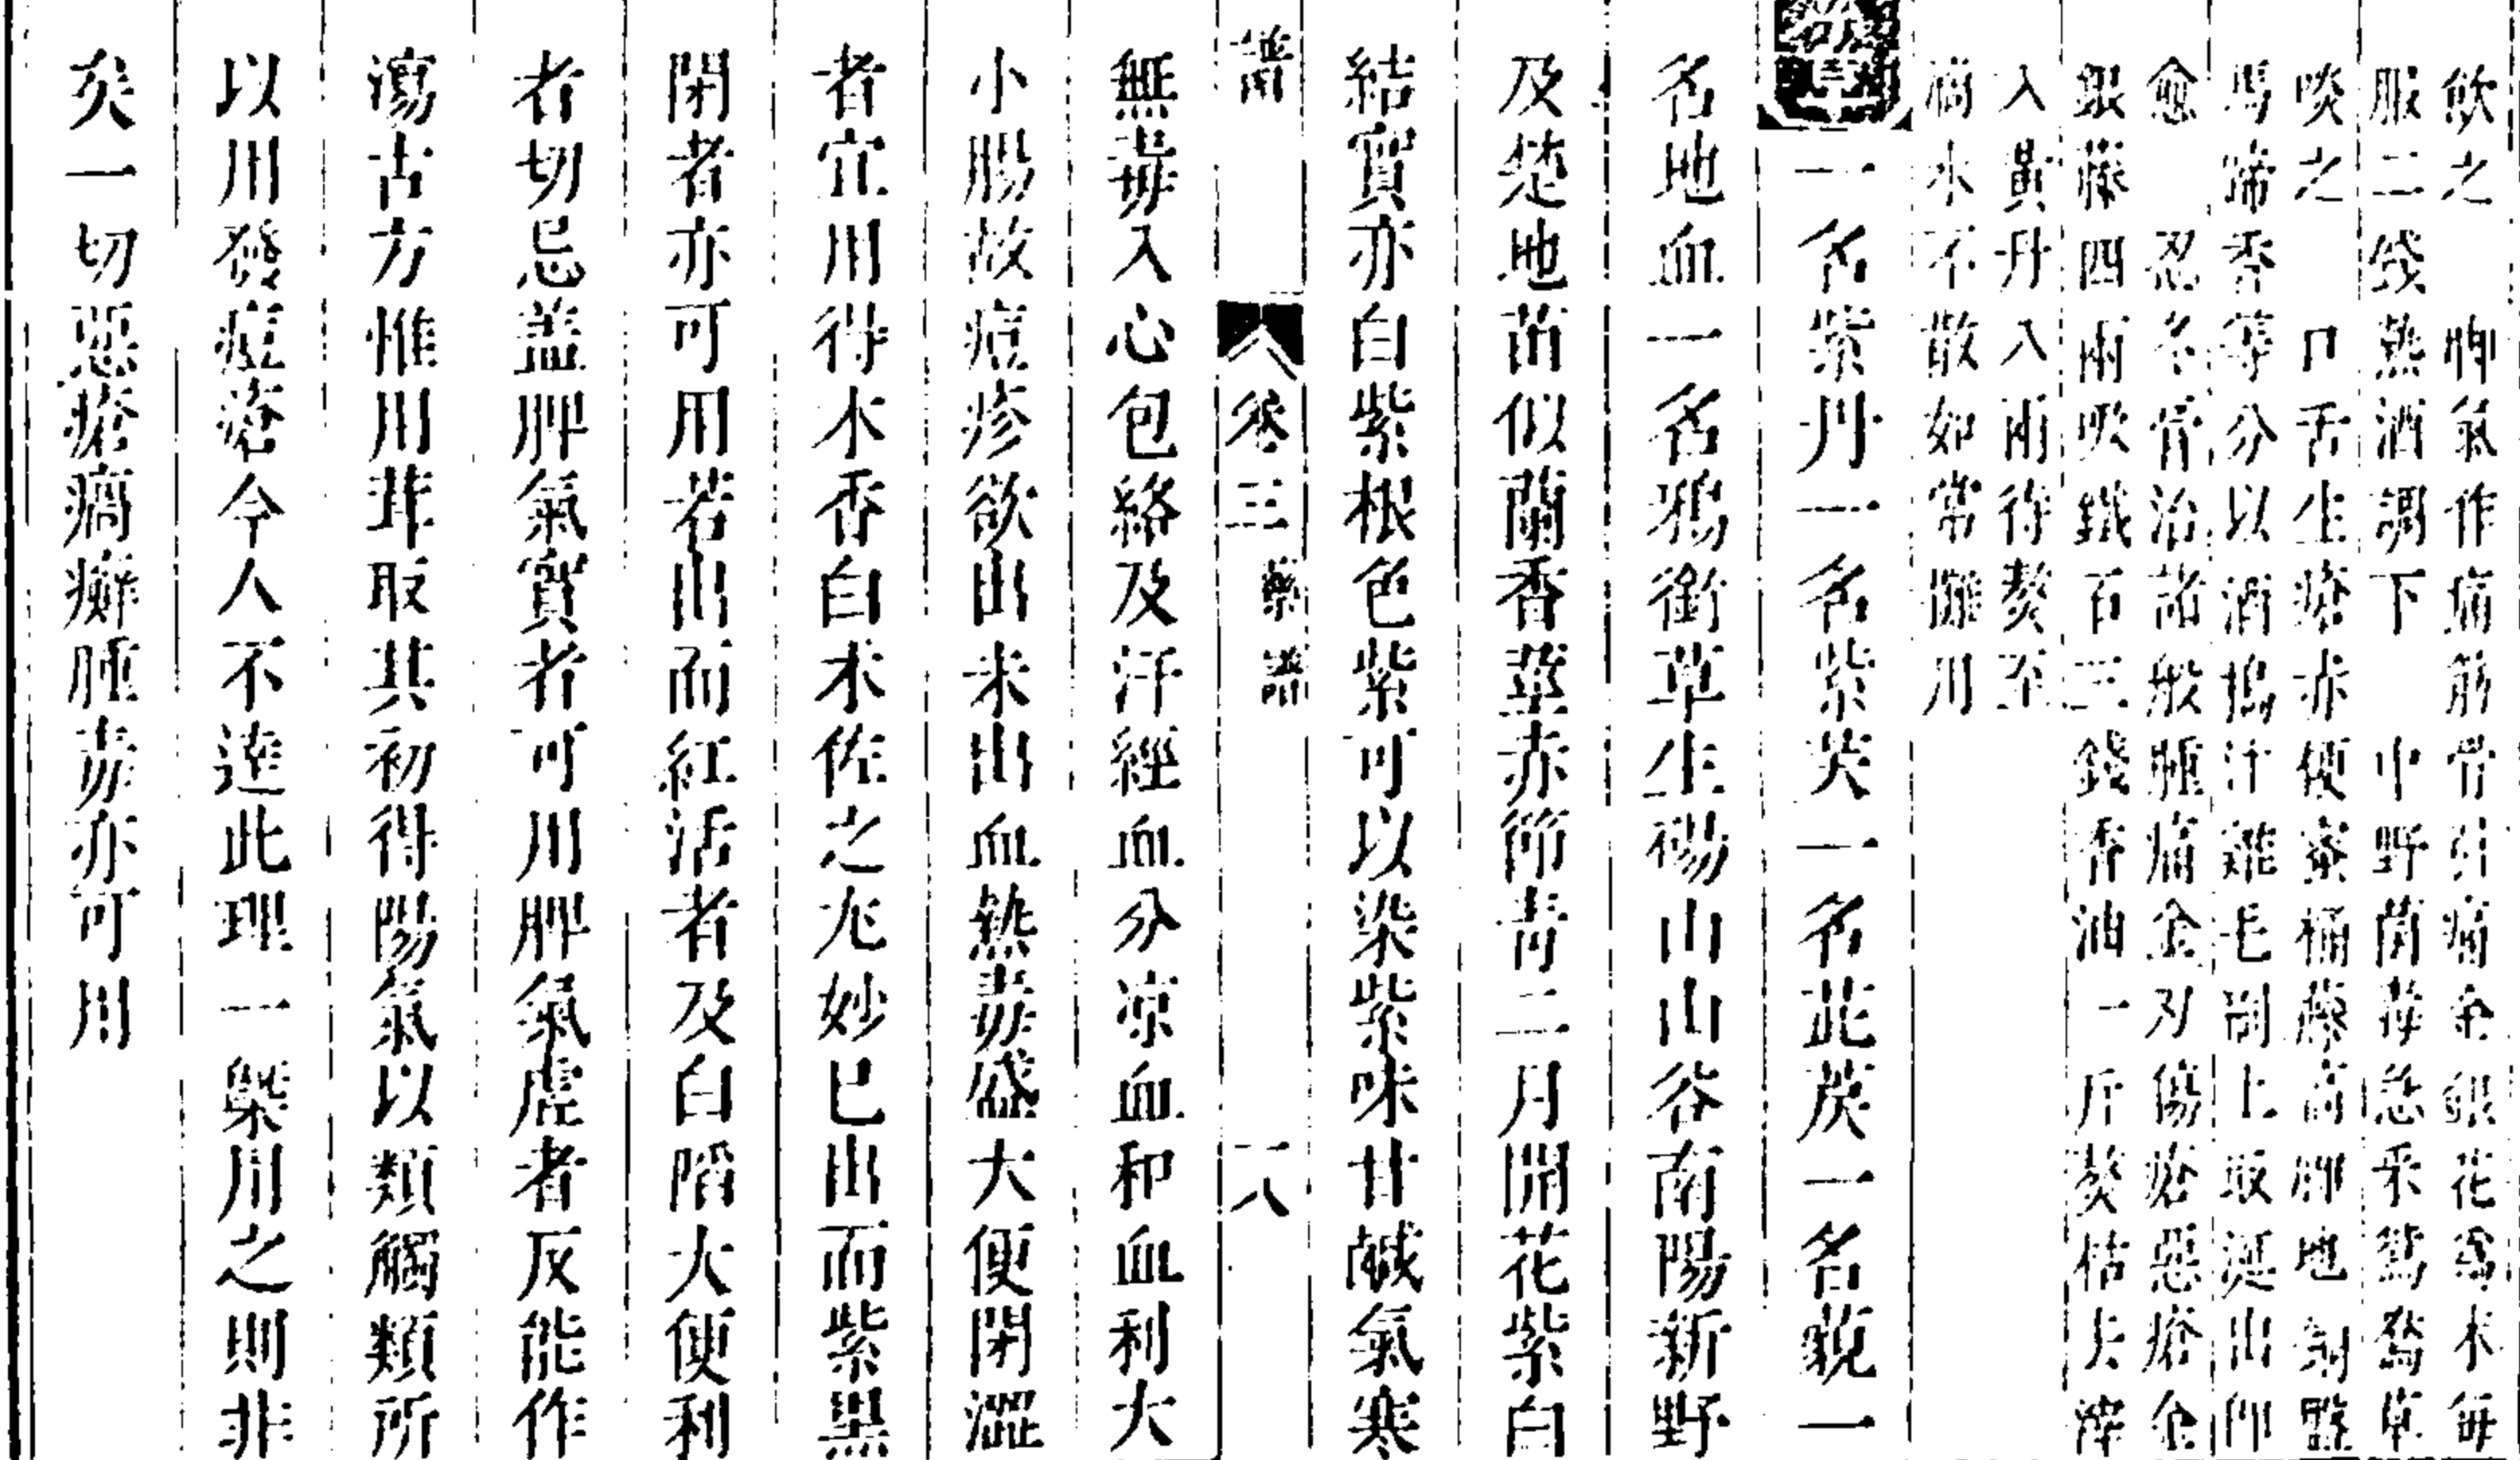 飲之　脚氣作痛筋骨引痛金銀花為末每
服二錢熱酒調下　中野菌毒急采鴛鴦草
啖之　口舌生瘡赤便蜜桶藤高脚地銅盤
馬蹄香等分以酒搗汁雞毛刷上取涎出即
愈　忍冬膏治諸般腫痛金刃傷瘡惡瘡金
銀藤四兩吸鐵石三錢香油一斤熬枯去滓
入黃丹八兩待熬至
滴水不散如常攤用
一名紫丹一名紫芺一名茈䓞一名藐一
名地血一名鴉銜草生碭山山谷南陽新野
及楚地苗似蘭香莖赤節青二月開花紫白
結實亦白紫根色紫可以染紫味甘鹹氣寒
譜　卷三 藥譜　一八
無毒入心包絡及汗經血分凉血和血利大
小腸故痘疹欲出未出血熱毒盛大便閉澀
者宜用得木香白朮佐之尤妙已出而紫黑
閉者亦可用若出而紅活者及白陷大便利
者切忌盖脾氣實者可用脾氣虛者反能作
瀉古方惟用茸取其初得陽氣以類觸類所
以用發痘瘡今人不達此理一槩用之則非
矣一切惡瘡瘑癬腫毒亦可用